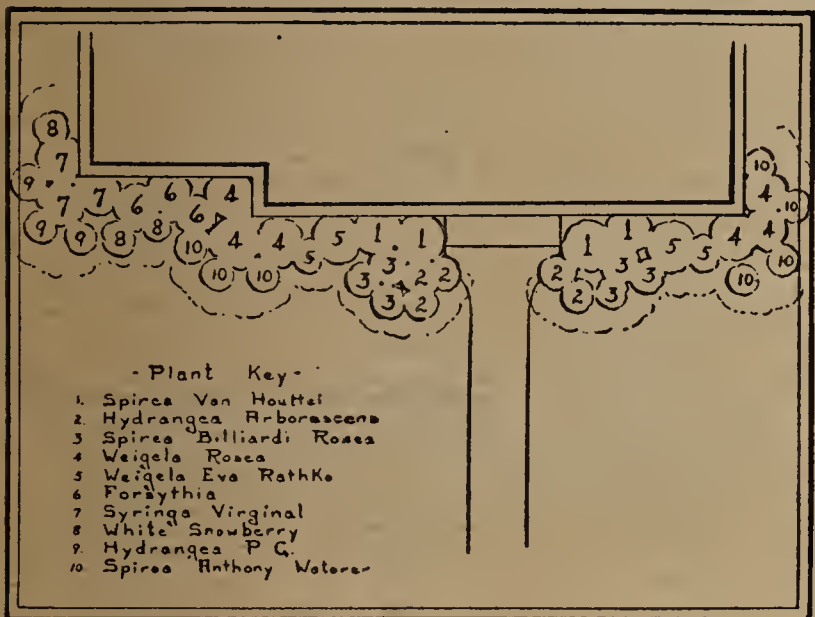 8 10
7 4
9 7 6 6 4 10
7 6 1 1 1 4
9 9 8 8 10 4 4 5 5 3 1 3 5 5 10
10 10 3 3 2 2 2 2 3 10
- Plant Key -
1. Spirea Van Houttei
2. Hydrangea Arborescens
3 Spirea Billiardi Rosea
4 Weigela Rosea
5 Weigela Eva Rathke
6 Forsythia
7 Syringa Virginal
8 White Snowberry
9. Hydrangea P. G.
10 Spirea Anthony Waterer